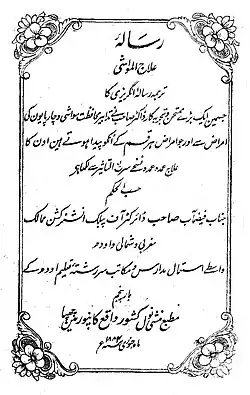 رسالہ
علاج المواشی
ترجمہ رسالہ انگریزی کا
جسمین ایک بڑے تجربہ کار ڈاکٹر صاحب نے تدابیر حفاظت مواشی وچارپایون کی
امراض سے اور جو امراض ہر قسم کے انکو پیدا ہوتے ہین اون کا
علاج عمدہ عمدہ نسخے سریع التاثیر سے لکھا ہے
حسب الحکم
جناب فیضمآب صاحب ڈائرکٹر آف پبلک انسٹرکشن ممالک
مغربی وشمالی واودھ
واسطے استعمال مدارس ومکاتب سررشتہ تعلیم اودھ کے
بار پنجم
مطبع منشی نول کشور واقع کانپور مین چھپا
ماہ جنوری